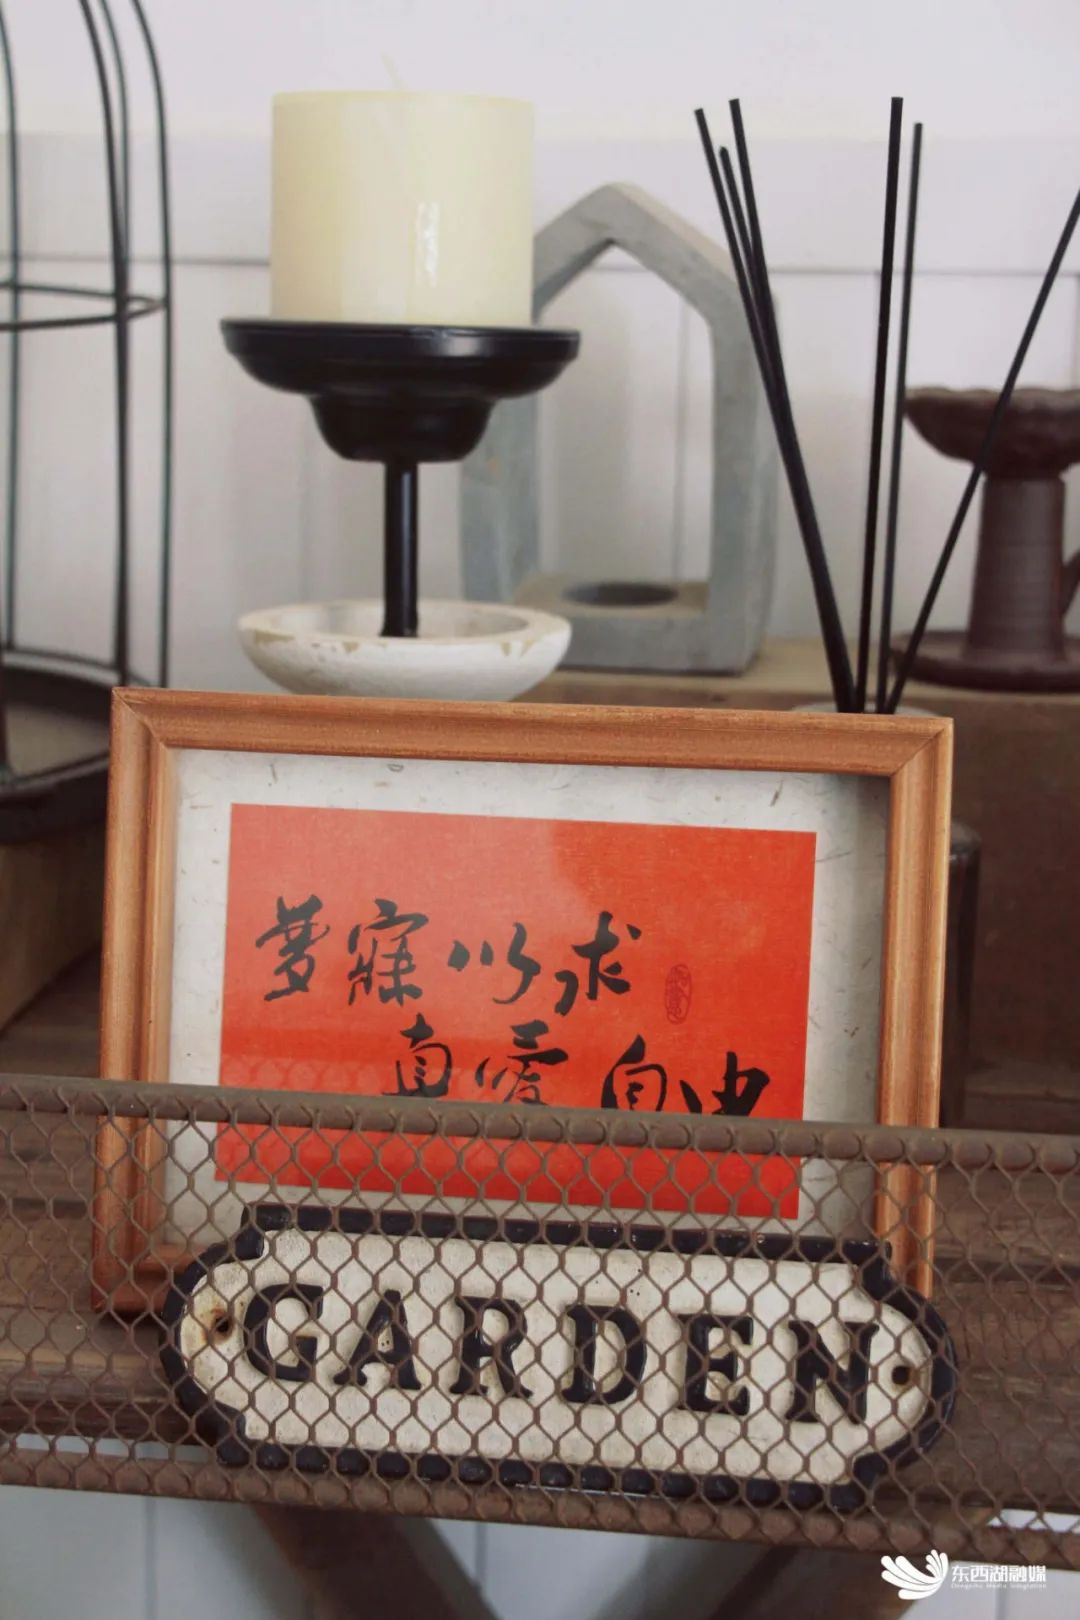 梦寐以求
真爱自由
GARDEN
东西湖融媒